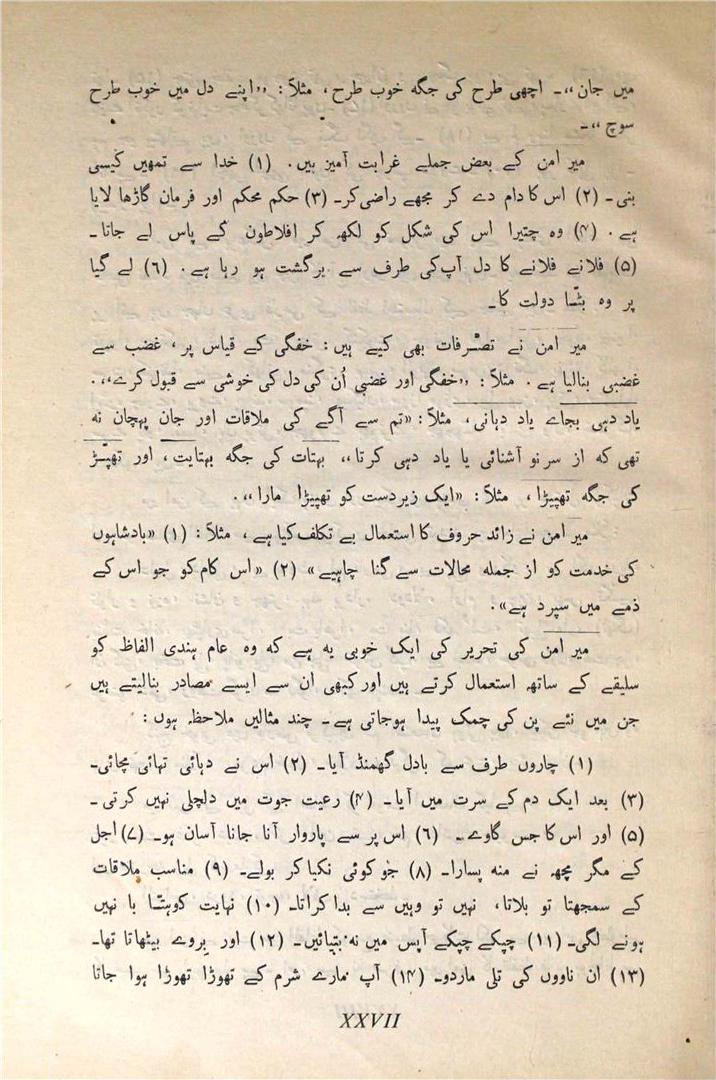 میں جان،،۔ اچھی طرح کی جگہ خوب طرح، مثلاً: ,,اپنے دل میں خوب طرح
سوچ،،۔
میر امن کے بعض جملے غرابت آمیز ہیں۔ (۱) خدا سے تمھیں کیسی
بنی۔ (۲) اس کا دام دے کر مجھے راضی کر۔ (۳) حکم محکم اور فرمان گاڑھا لایا
ہے۔ (۴) وہ چتیرا اس کی شکل کو لکھ کر افلاطون کے پاس لے جاتا۔
(۵) فلانے فلانے کا دل آپ کی طرف سے برگشت ہو رہا ہے۔ (۶) لے گیا
پر وہ بٹّا دولت کا۔
میر امن نے تصّرفات بھی کیے ہیں: خفگی کے قیاس پر، غضب سے
غضبی بنالیا ہے۔ مثلاً: ,,خفگی اور غضبی اُن کی دل کی خوشی سے قبول کرے،،۔
یاد دہی بجاے یاد دہانی، مثلاً: «تم سے آگے کی ملاقات اور جان پہچان نہ
تھی کہ از سر نو آشنائی یا یاد دہی کرتا،، بہتات کی جگہ بہتایت، اور تھپّڑ
کی جگہ تھپیڑا، مثلاً: «ایک زبردست کو تھپیڑا مارا،،۔
میر امن نے زائد حروف کا استعمال بے تکلف کیا ہے، مثلاً: (۱) «بادشاہوں
کی خدمت کو از جملہ محالات سے گنا چاہیے» (۲) «اس کام کو جو اس کے
ذمے میں سپرد ہے»۔
میر امن کی تحریر کی ایک خوبی یہ ہے کہ وہ عام ہندی الفاظ کو
سلیقے کے ساتھ استعمال کرتے ہیں اور کبھی ان سے ایسے مصادر بنالیتے ہیں
جن میں نئے پن کی چمک پیدا ہوجاتی ہے۔ چند مثالیں ملاحظہ ہوں:
(۱) چاروں طرف سے بادل گھمنڈ آیا۔ (۲) اس نے دہائی تہائی مچائی۔
(۳) بعد ایک دم کے سرت میں آیا۔ (۴) رعیت جوت میں دلچلی نہیں کرتی۔
(۵) اور اس کا جس گاوے۔ (۶) اس پر سے پاروار آنا جانا آسان ہو۔ (۷) اجل
کے مگر مچھ نے منہ پسارا۔ (۸) جو کوئی نکیا کر بولے۔ (۹) مناسب ملاقات
کے سمجھتا تو بلاتا، نہیں تو وہیں سے بدا کراتا۔ (۱۰) نہایت کوہتّا با نہیں
ہونے لگی۔ (۱۱) چپکے چپکے آپس میں نہ بتیائیں۔ (۱۲) اور بروے بیٹھاتا تھا۔
(۱۳) ان ناووں کی تلی ماردو۔ (۱۴) آپ مارے شرم کے تھوڑا تھوڑا ہوا جاتا
XXVII